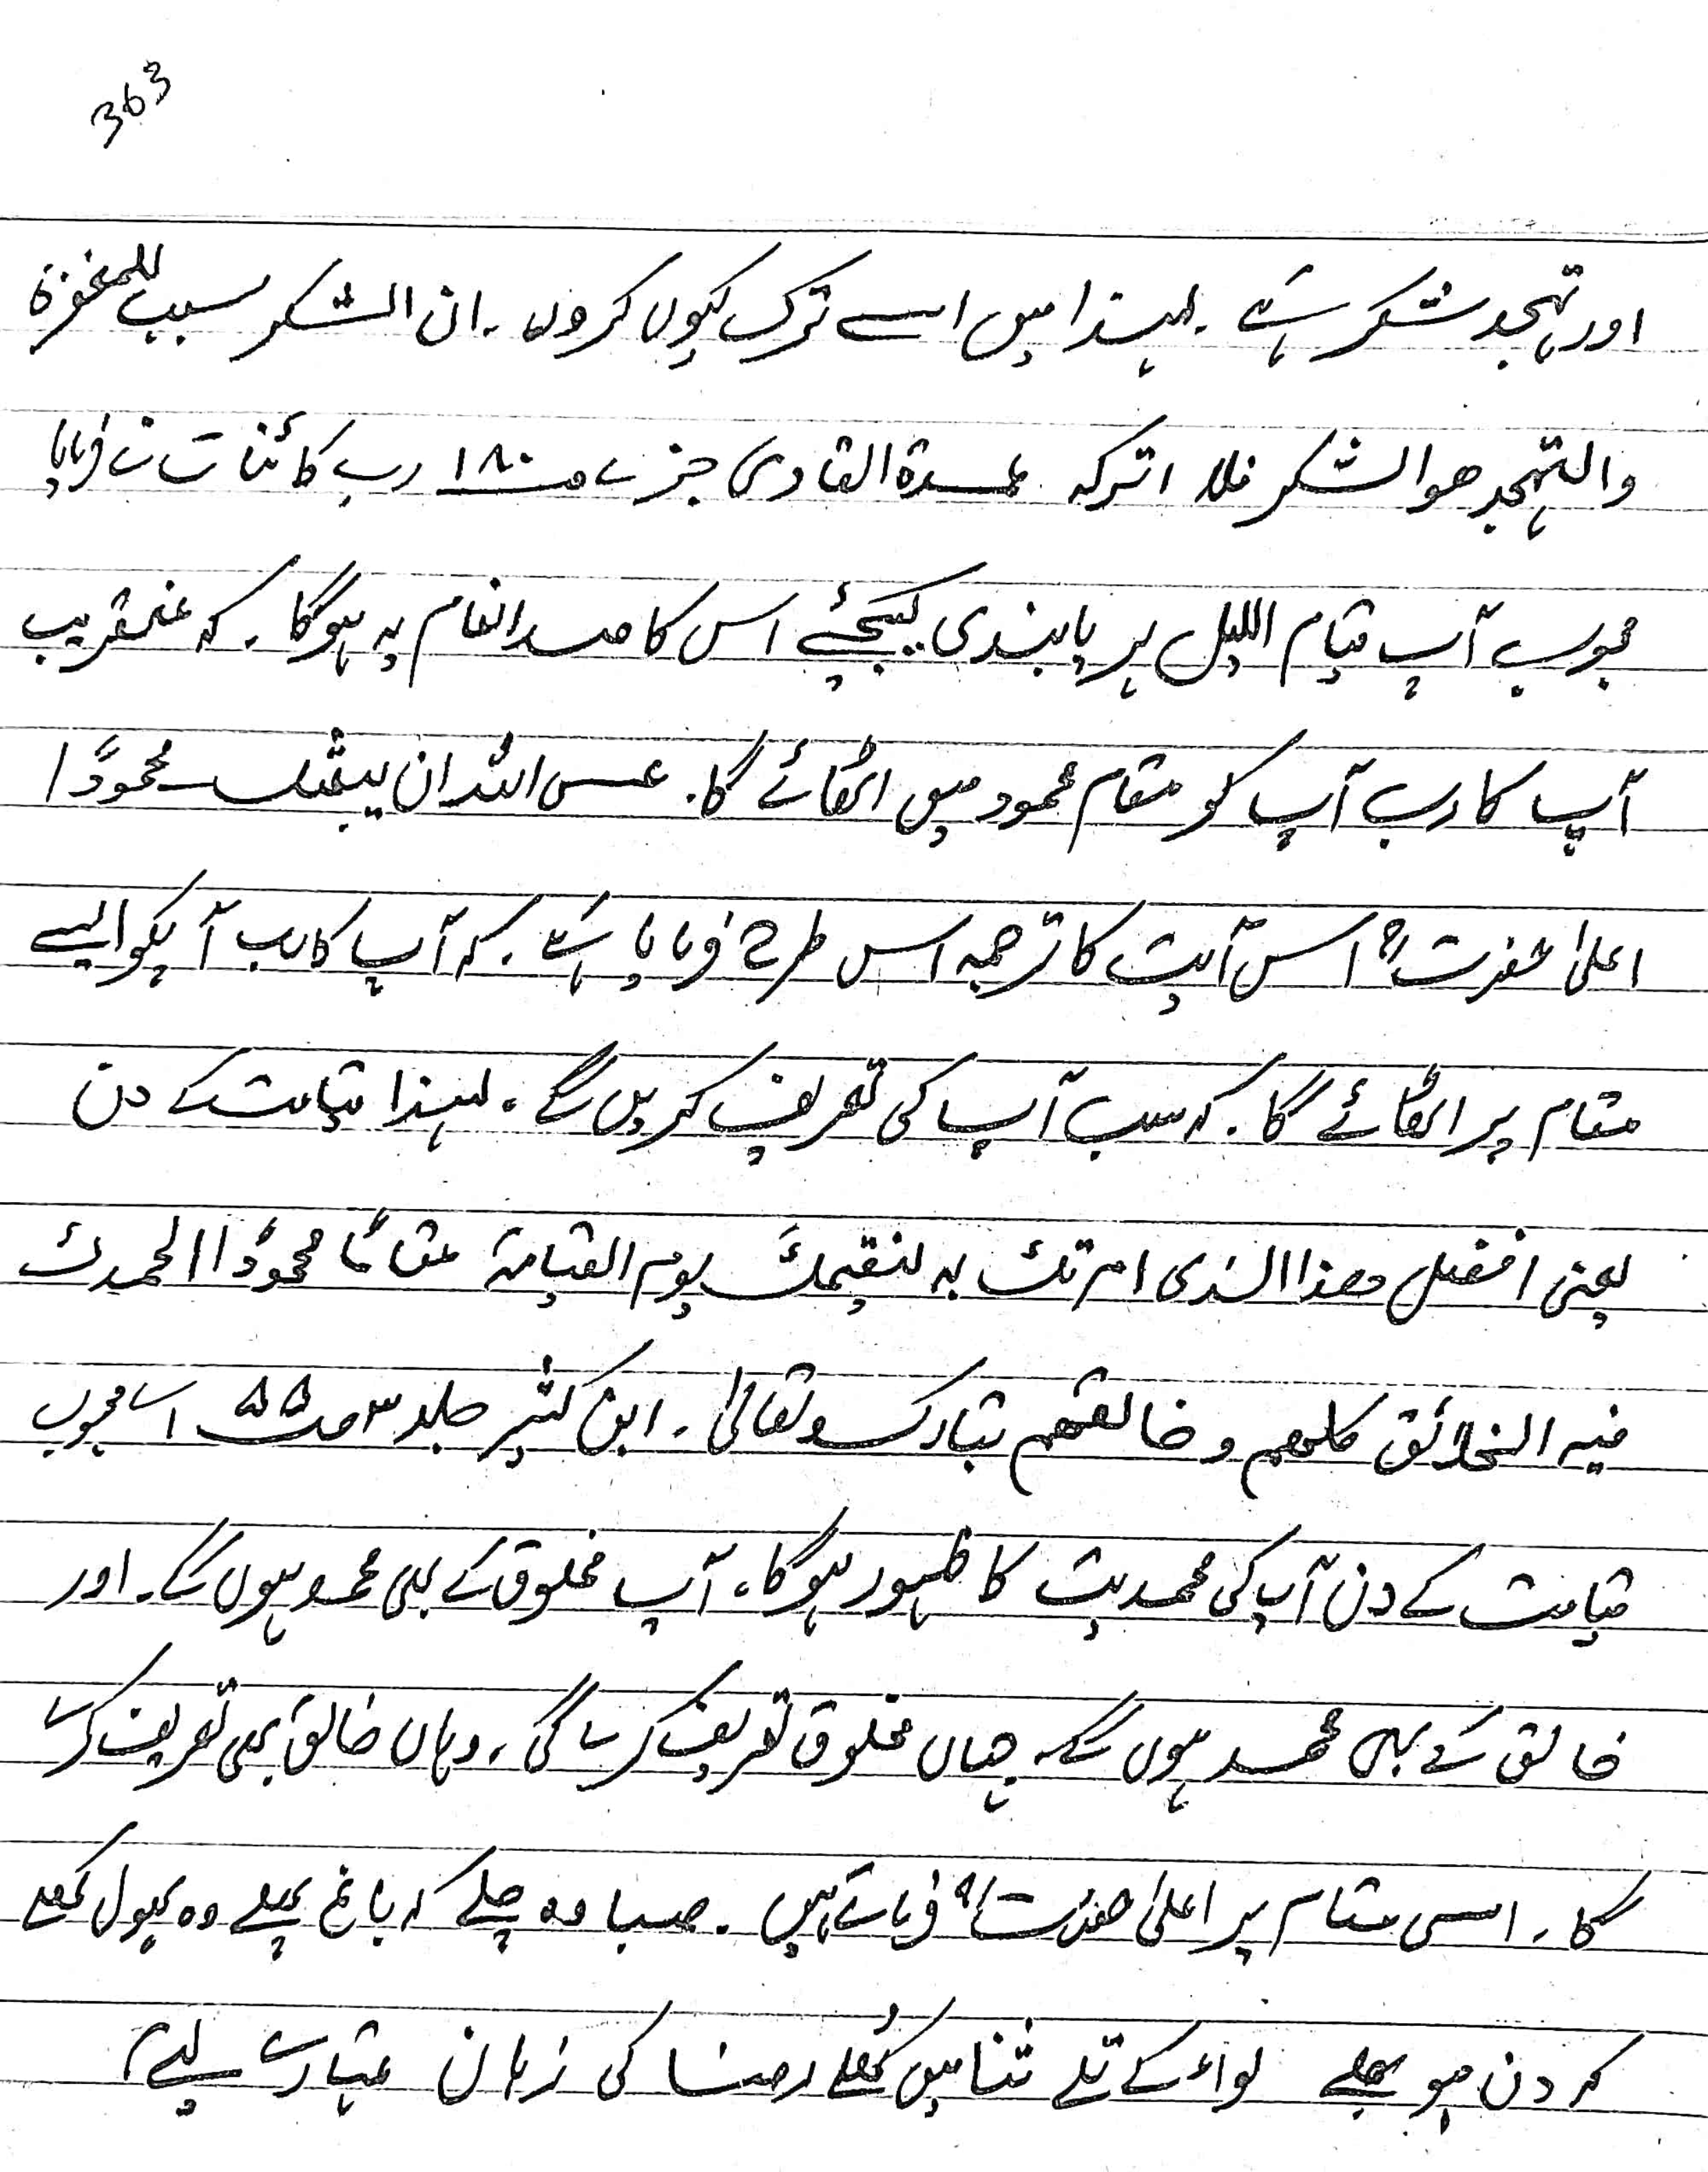 363
اور تہجد شکر ہے ۔ لہذا میں اسے ترک کیوں کروں ۔ ان الشکر سبب للمغفرۃ
والتہجد ھو الشکر فلا اترکہ عمدۃ القاری جز ے صـ ۱۸۰ رب کائنات نے فرمایا
محبوب آپ قیام اللیل پر پابندی کیجئے اس کا صلہ انعام یہ ہوگا ۔ کہ عنقریب
آپ کا رب آپ کو مقام محمود میں اٹھائے گا ۔ عسی اللہ ان یبعثک محمودًا
اعلیٰ حضرتؒ اس آیت کا ترجمہ اس طرح فرمایا ہے ۔ کہ آپ کا رب آپکو ایسے
مقام پر اٹھائے گا ۔ کہ سب آپ کی تعریف کریں گے ۔ لہذا قیامت کے دن
یعنی افعل ھذا الذی امرتک بہ لنقیمک یوم القیامۃ مقامًا محمودًا الحمدک
فیہ الخلائق کلھم و خالقھم تبارک وتعالیٰ ۔ ابن کثیر جلد ۳ صـ ۵۵ اے محبوب
قیامت کے دن آپ کی محمدیت کا ظہور ہوگا ۔ آپ مخلوق کے بھی محمد ہوں گے ۔ اور
خالق کے بھی محمد ہوں گے ۔ جہاں مخلوق تعریف کرے گی ، وہاں خالق بھی تعریف کرے
گا ۔ اسی مقام پر اعلیٰ حضرتؒ فرماتے ہیں ۔ صبا وہ چلے کہ باغ پھلے وہ پھول کھلے
کہ دن ہو بھلے لواء کے تلے ثنا میں کُھلے رضا کی زبان تمہارے لیے